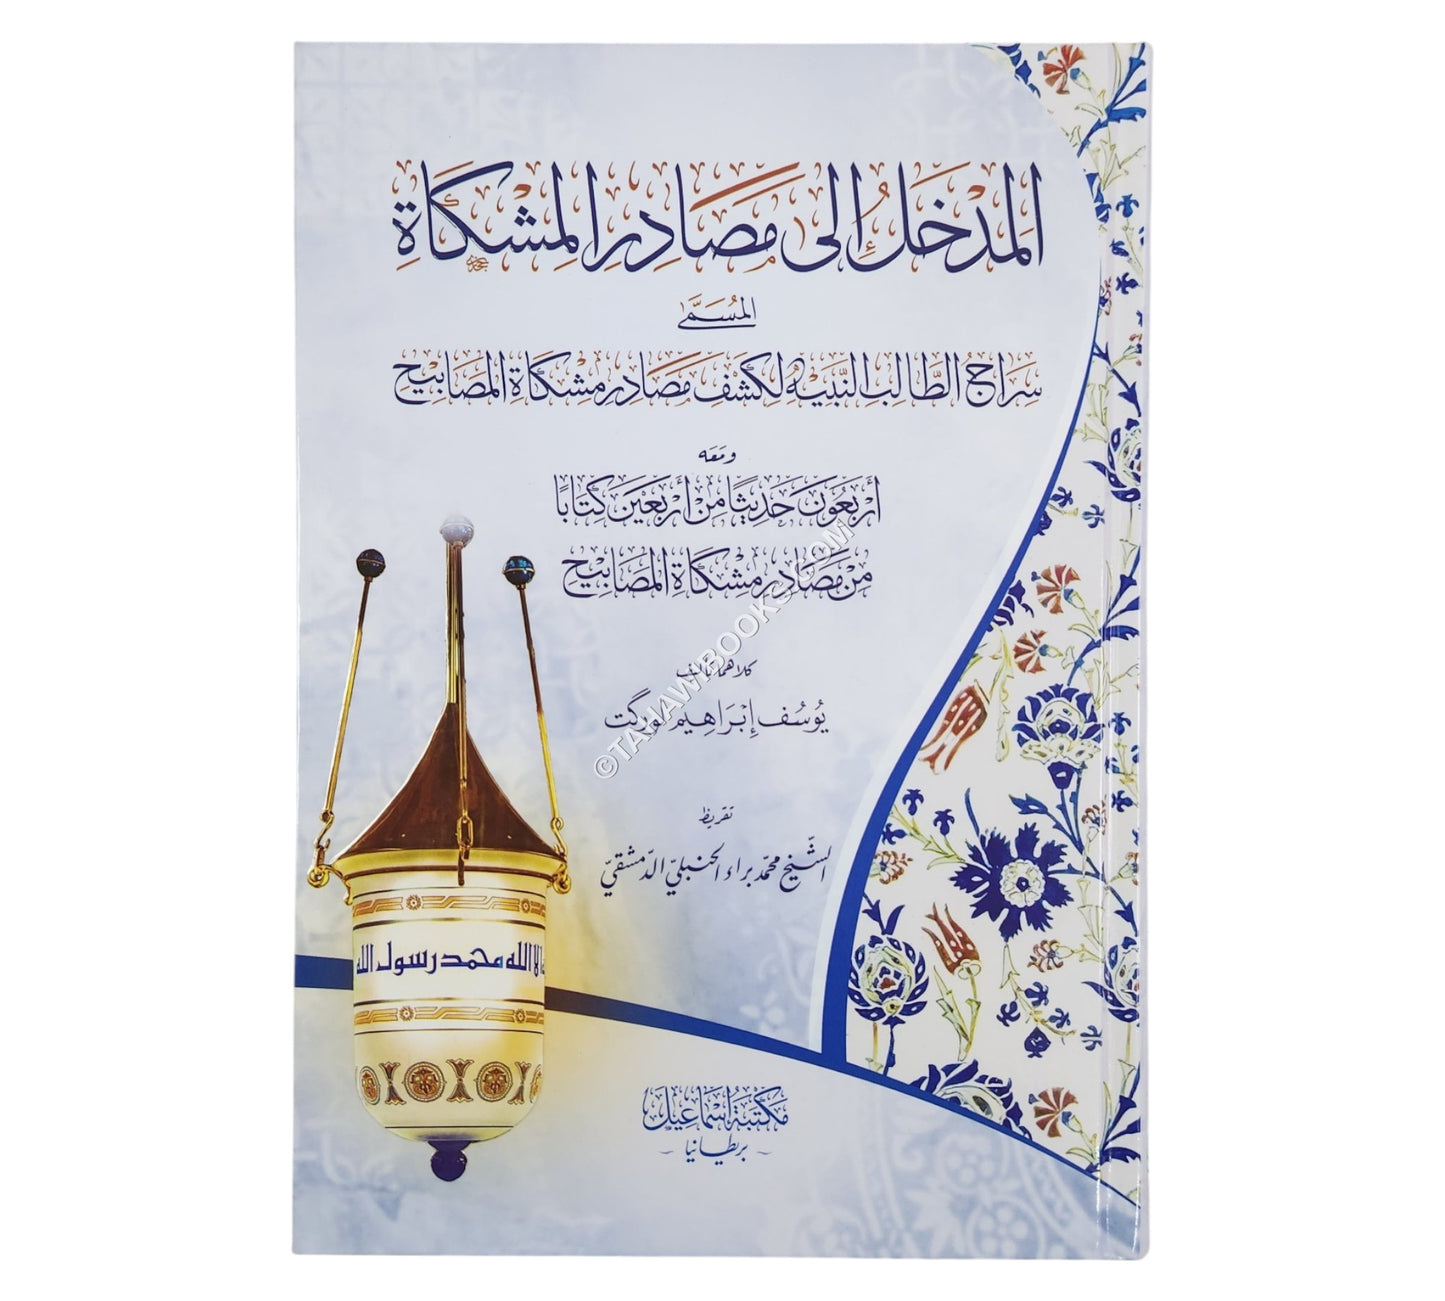 المَدْخَلُ إِلَى مَصَادِرِ المِشْكَاةِ
المُسَمَّى
سِرَاجُ الطَّالِبِ النَّبِيهِ لِكَشْفِ مَصَادِرِ مِشْكَاةِ المَصَابِيحِ
وَمَعَه
أَرْبَعُونَ حَدِيثًا مِنْ أَرْبَعِينَ كِتَابًا
مِنْ مَصَادِرِ مِشْكَاةِ المَصَابِيحِ
كلاهما تأليف
يُوسُف إِبْرَاهِيم
©TAHAWIBOOKS.COM
تقريظ
الشّيخ محمّد براء الحنبليّ الدّمشقيّ
الا الله محمد رسول الله
مَكْتَبَةُ إِسْمَاعِيل
- بريطانيا -